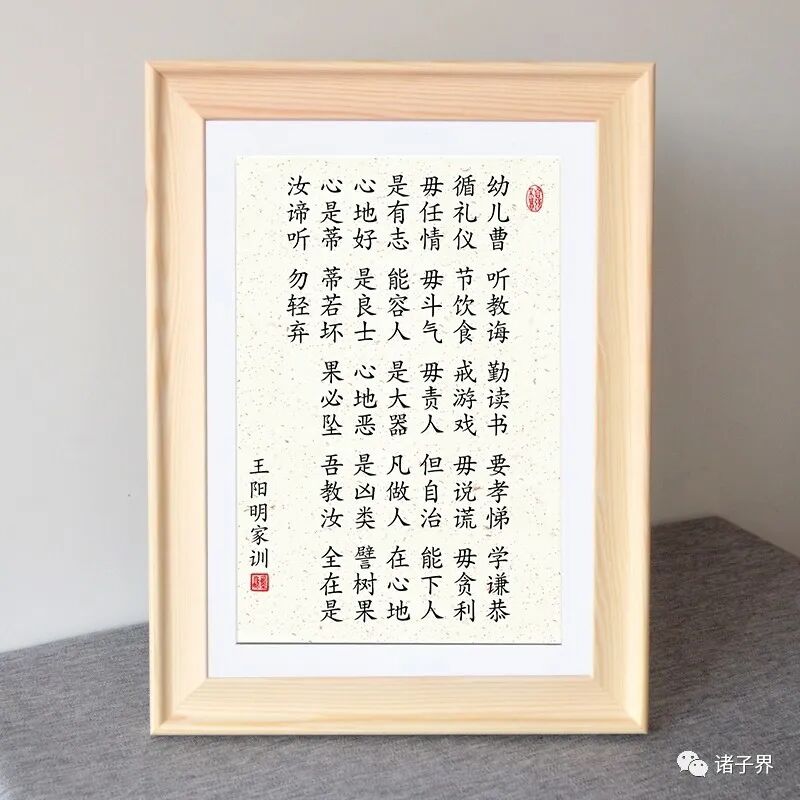 幼儿曹 听教诲 勤读书 要孝悌 学谦恭
循礼仪 节饮食 戒游戏 毋说谎 毋贪利
毋任情 毋斗气 毋责人 但自治 能下人
是有志 能容人 是大器 凡做人 在心地
心地好 是良士 心地恶 是凶类 譬树果
心是蒂 蒂若坏 果必坠 吾教汝 全在是
汝谛听 勿轻弃
王阳明家训
诸子界